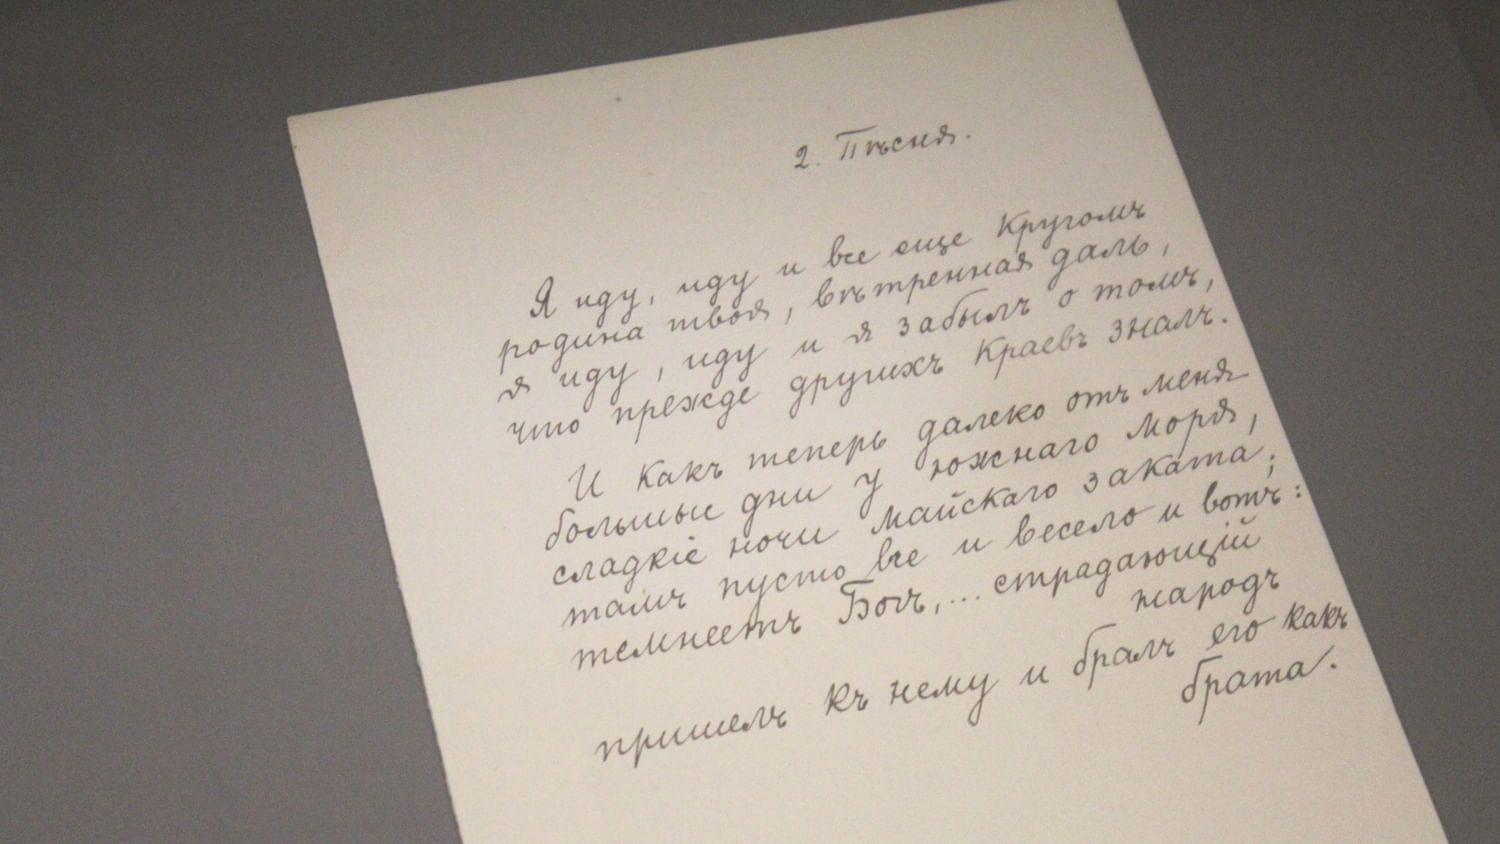 2. Пѣсня.
Я иду, иду и все еще Кругомъ
родина твоя, вѣтренная даль,
я иду, иду и я забылъ о томъ,
что прежде другихъ Краевъ зналъ.
И какъ теперь далеко отъ меня
большые дни у южнаго моря,
сладкіе ночи майскаго заката;
тамъ пусто все и весело и вотъ:
темнеетъ Богъ,... страдающій
народъ
пришелъ къ нему и бралъ его какъ
брата.